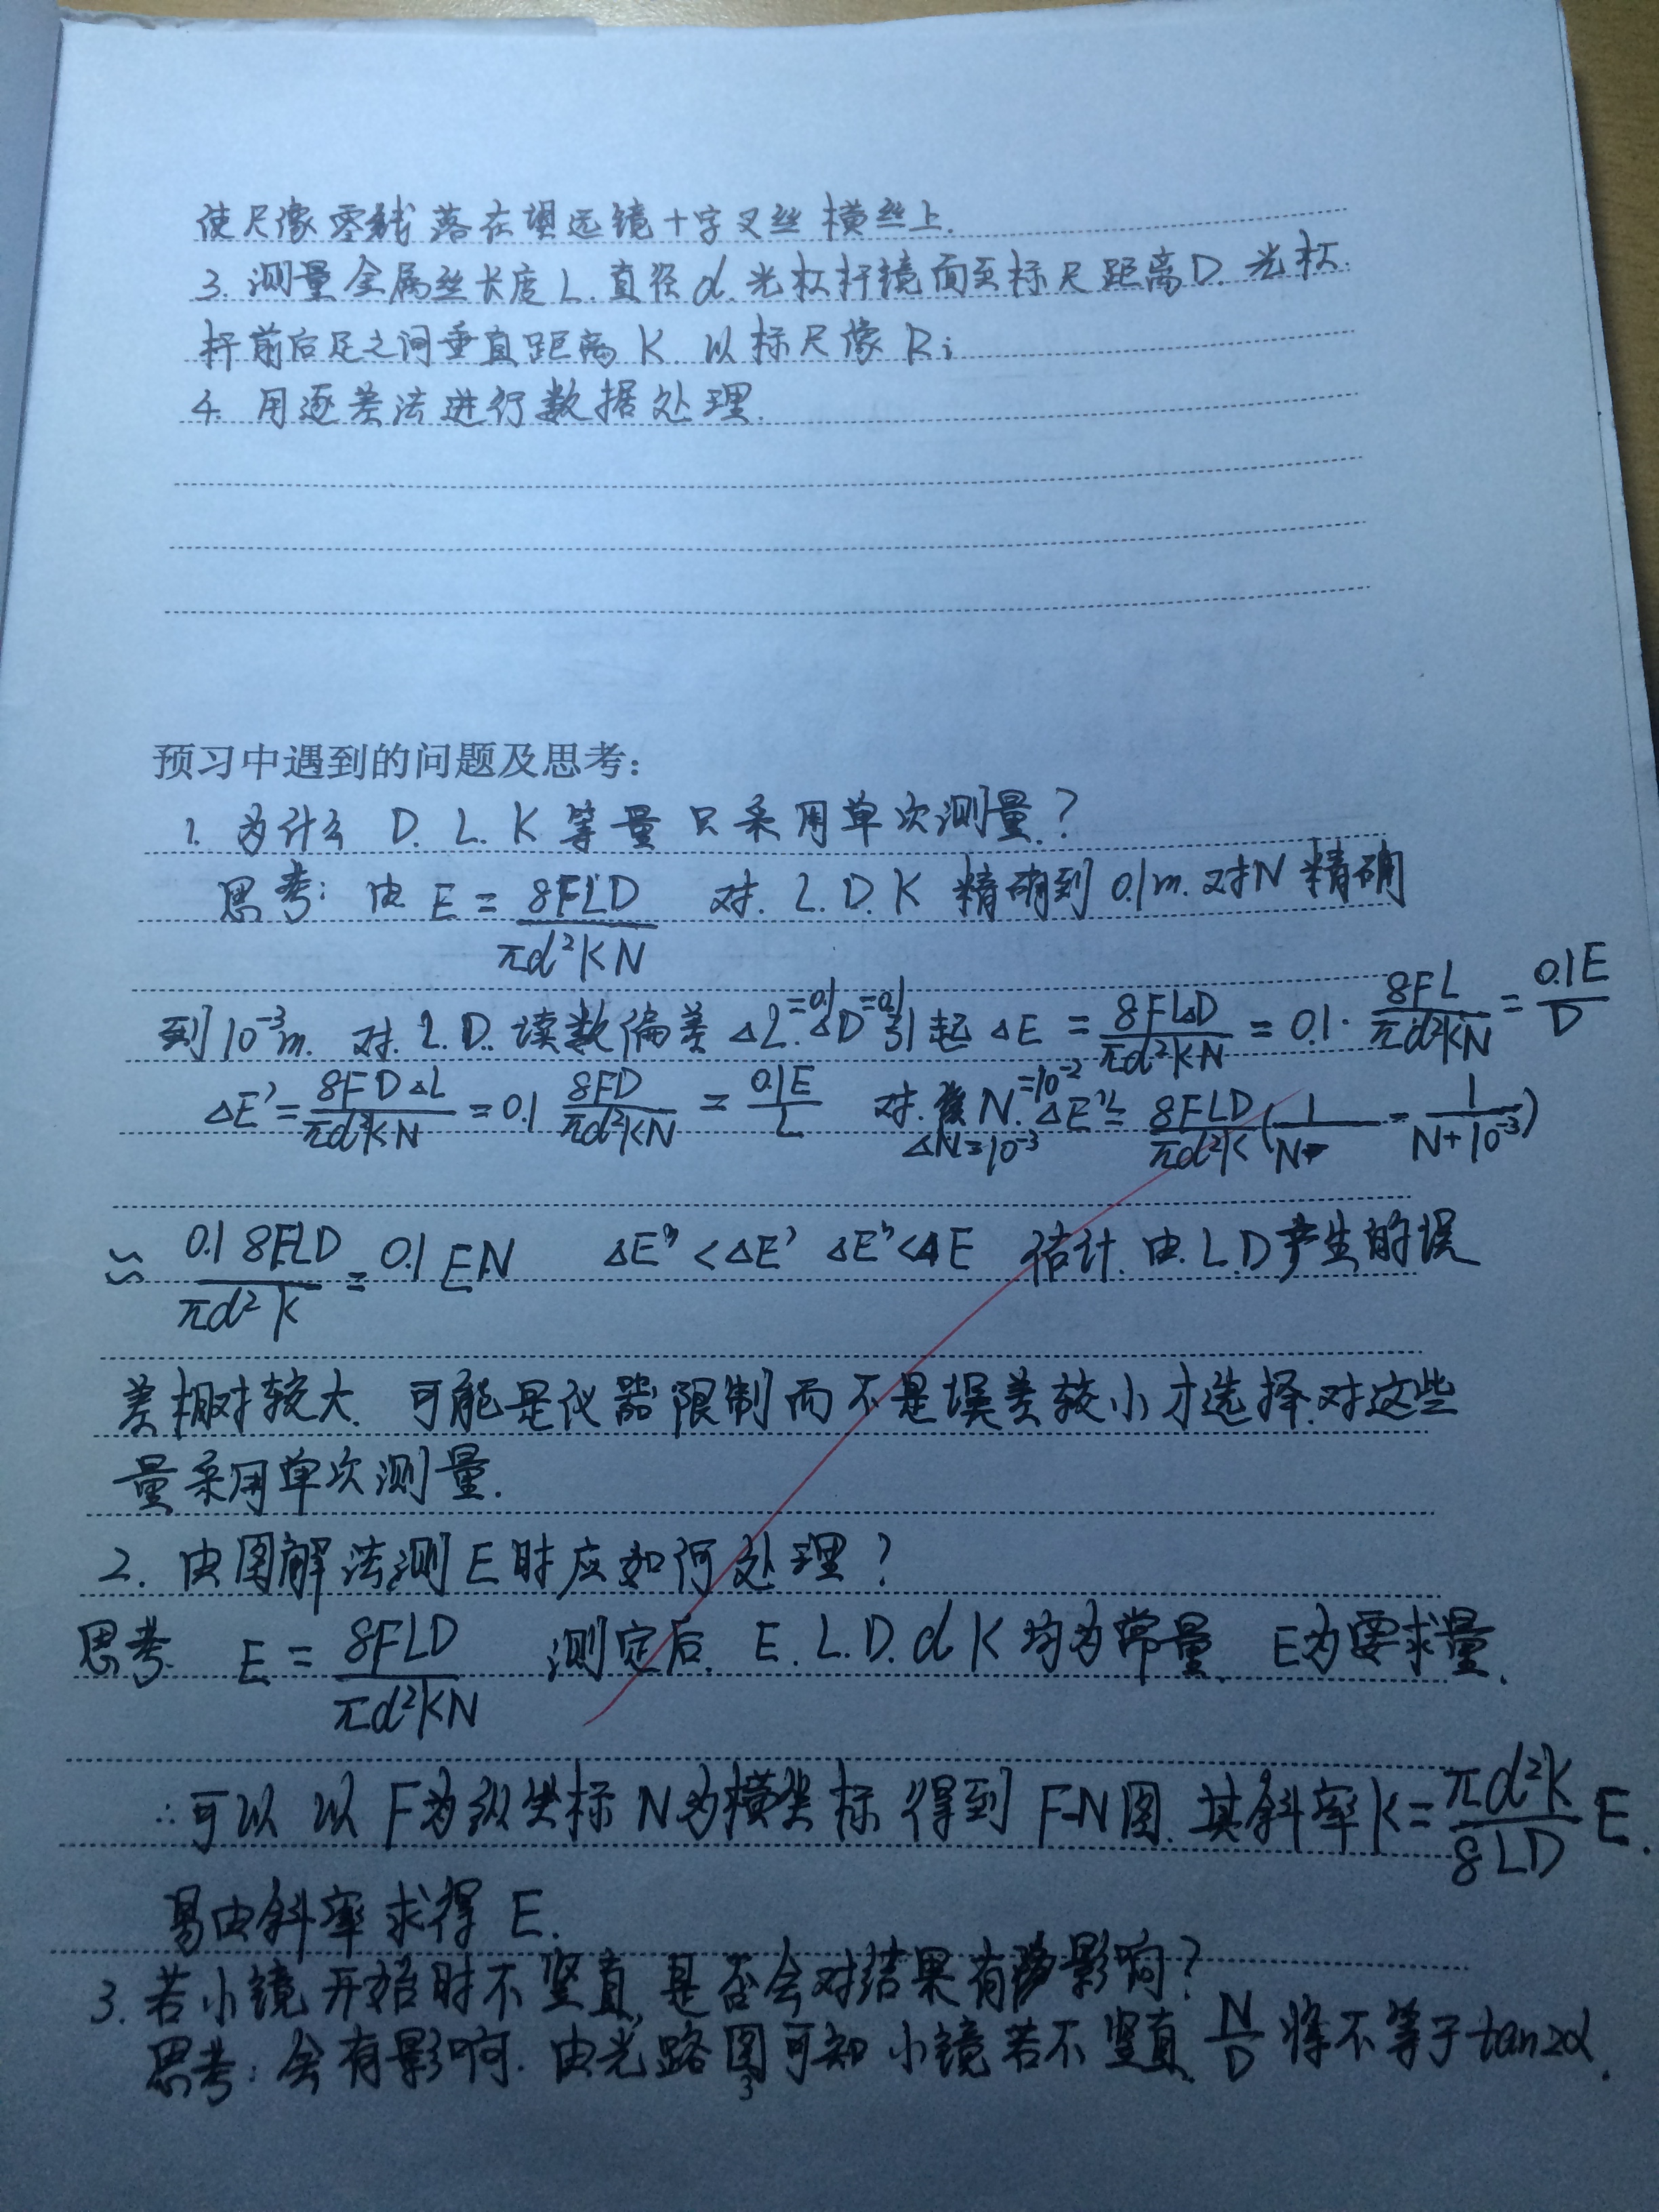 使尺像零线落在望远镜十字叉丝横丝上.
3. 测量金属丝长度L. 直径d. 光杠杆镜面至标尺距离D. 光杠
杆前后足之间垂直距离K. 以标尺像Ri
4. 用逐差法进行数据处理.
预习中遇到的问题及思考:
1. 为什么 D. L. K 等量只采用单次测量.?
思考: 由 E = 8FLD/πd²KN 对. L. D. K 精确到 0.1m. 对N 精确
到10⁻³m. 对. L. D. 读数偏差 ΔL=0.1. ΔD=0.1 引起 ΔE = 8FLΔD/πd²KN = 0.1· 8FL/πd²KN = 0.1E/D
ΔE' = 8FDΔL/πd²KN = 0.1 8FD/πd²KN = 0.1E/L 对. N=10⁻². ΔN=10⁻³ ΔE'' = 8FLD/πd²K (1/N - 1/N+10⁻³)
≈ 0.1 8FLD/πd²K = 0.1 EN ΔE'' < ΔE' ΔE'' < ΔE 估计. 由. L. D 产生的误
差相对较大. 可能是仪器限制而不是误差较小才选择.对这些
量采用单次测量.
2. 由图解法测E时应如何处理?
思考. E = 8FLD/πd²KN 测定后. E. L. D. d K 均为常量. E为要求量.
∴可以 以 F为纵坐标 N为横坐标 得到 F-N图. 其斜率k = πd²K/8LD E.
易由斜率求得 E.
3. 若小镜开始时不竖直, 是否会对结果有影响?
思考: 会有影响. 由光路图可知 小镜若不竖直. N/D 将不等于 tan2α.
3